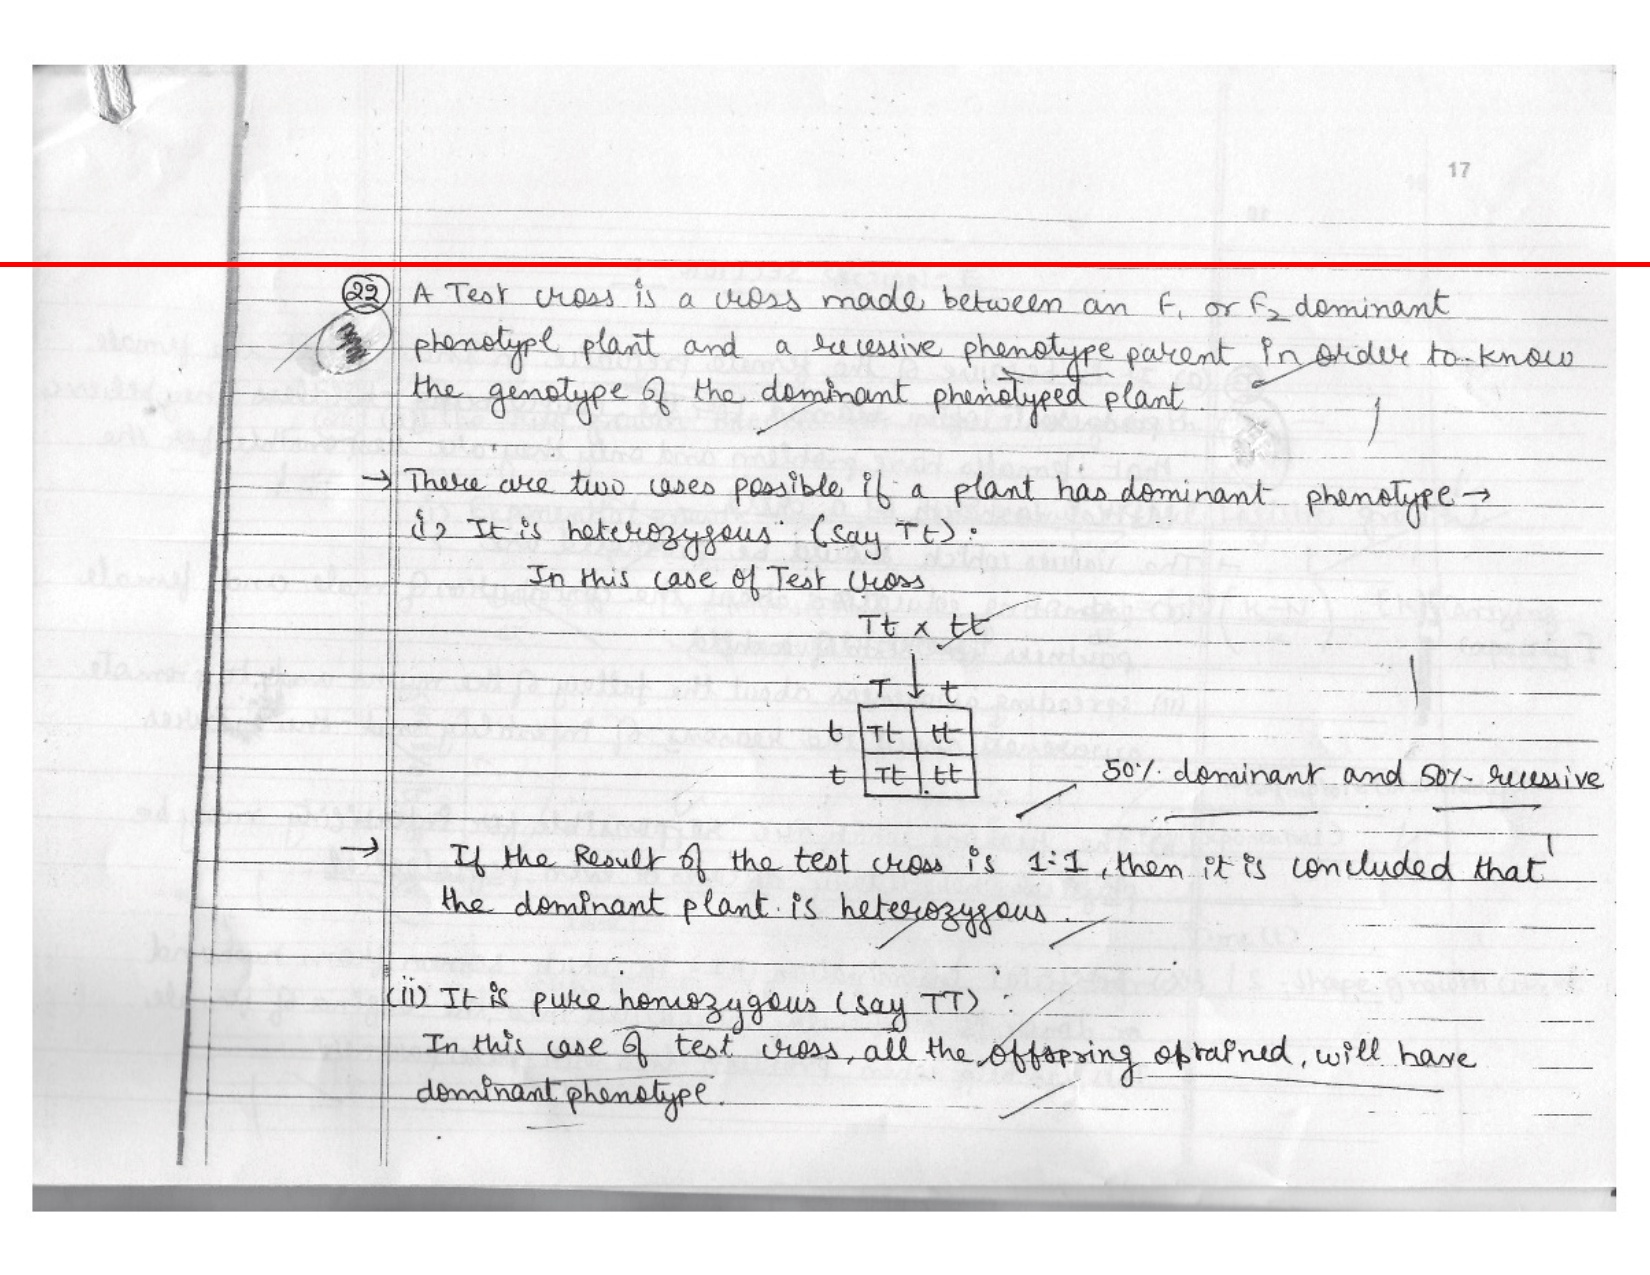 17
22 A Test cross is a cross made between an F1 or F2 dominant
phenotype plant and a recessive phenotype parent in order to know
the genotype of the dominant phenotyped plant.
→ There are two cases possible if a plant has dominant phenotype →
i) It is heterozygous (say Tt):
In this case of Test cross
Tt x tt
T t
t Tt tt
t Tt tt
50% dominant and 50% recessive
→ If the Result of the test cross is 1:1, then it is concluded that
the dominant plant is heterozygous.
(ii) It is pure homozygous (say TT):
In this case of test cross, all the offspring obtained, will have
dominant phenotype.